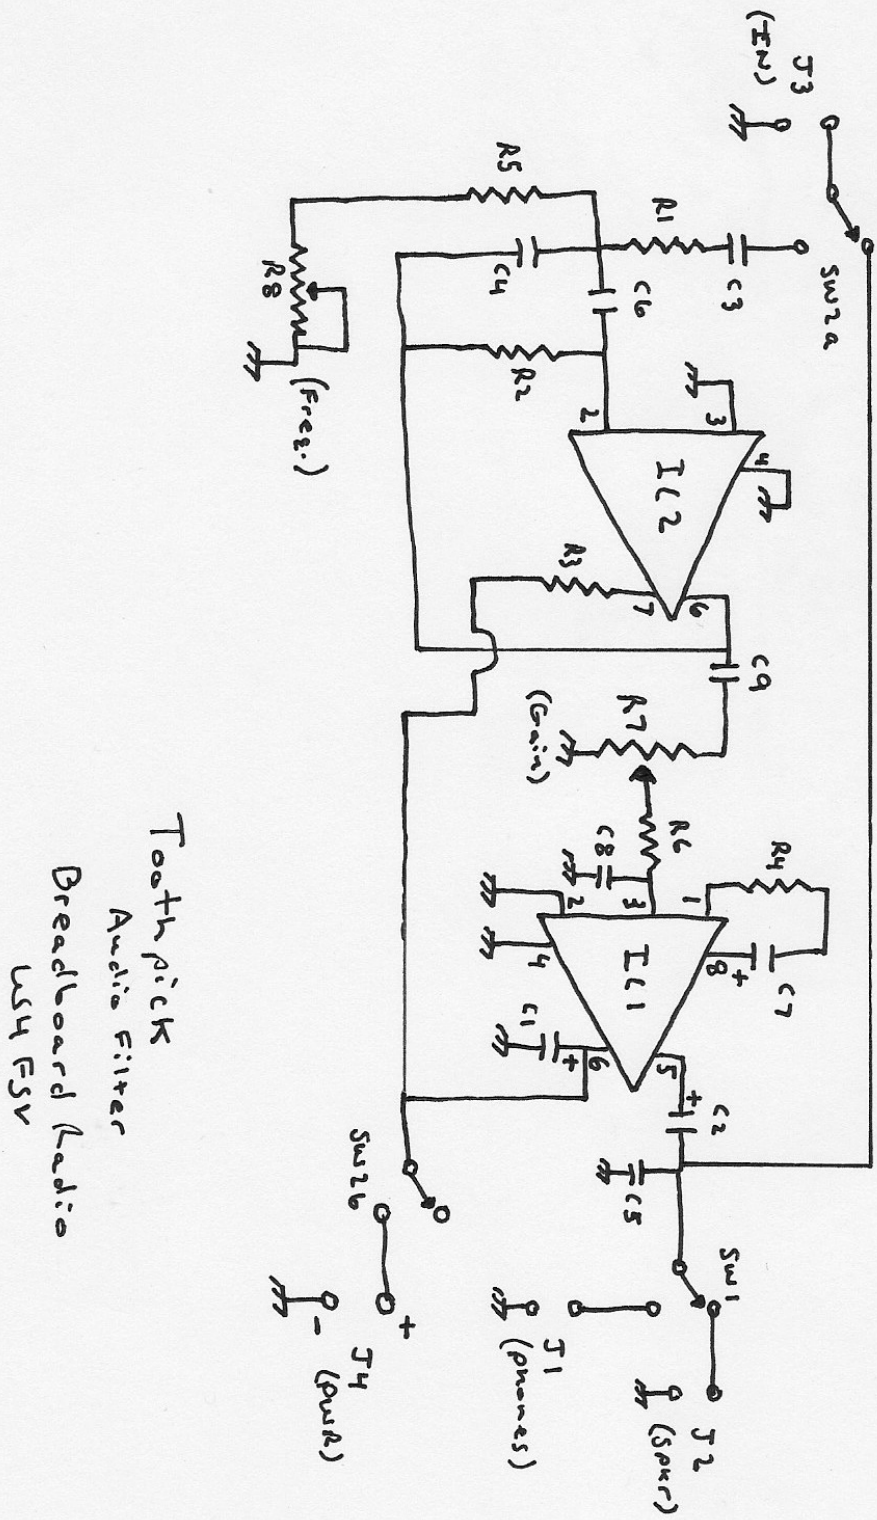 J3
(IN)
SW2a
R5
R1
C3
C4
C6
R2
R8
(Freq.)
2
3
4
IC2
R3
7
6
C9
R7
(Gain)
R6
C8
R4
C7
+
1
8
3
2
4
IC1
C1
+
6
5
+
C2
C5
SW1
SW2b
+
-
J4
(PWR)
J1
(phones)
J2
(Spkr)
Toothpick
Audio Filter
Breadboard Radio
WS4FSV